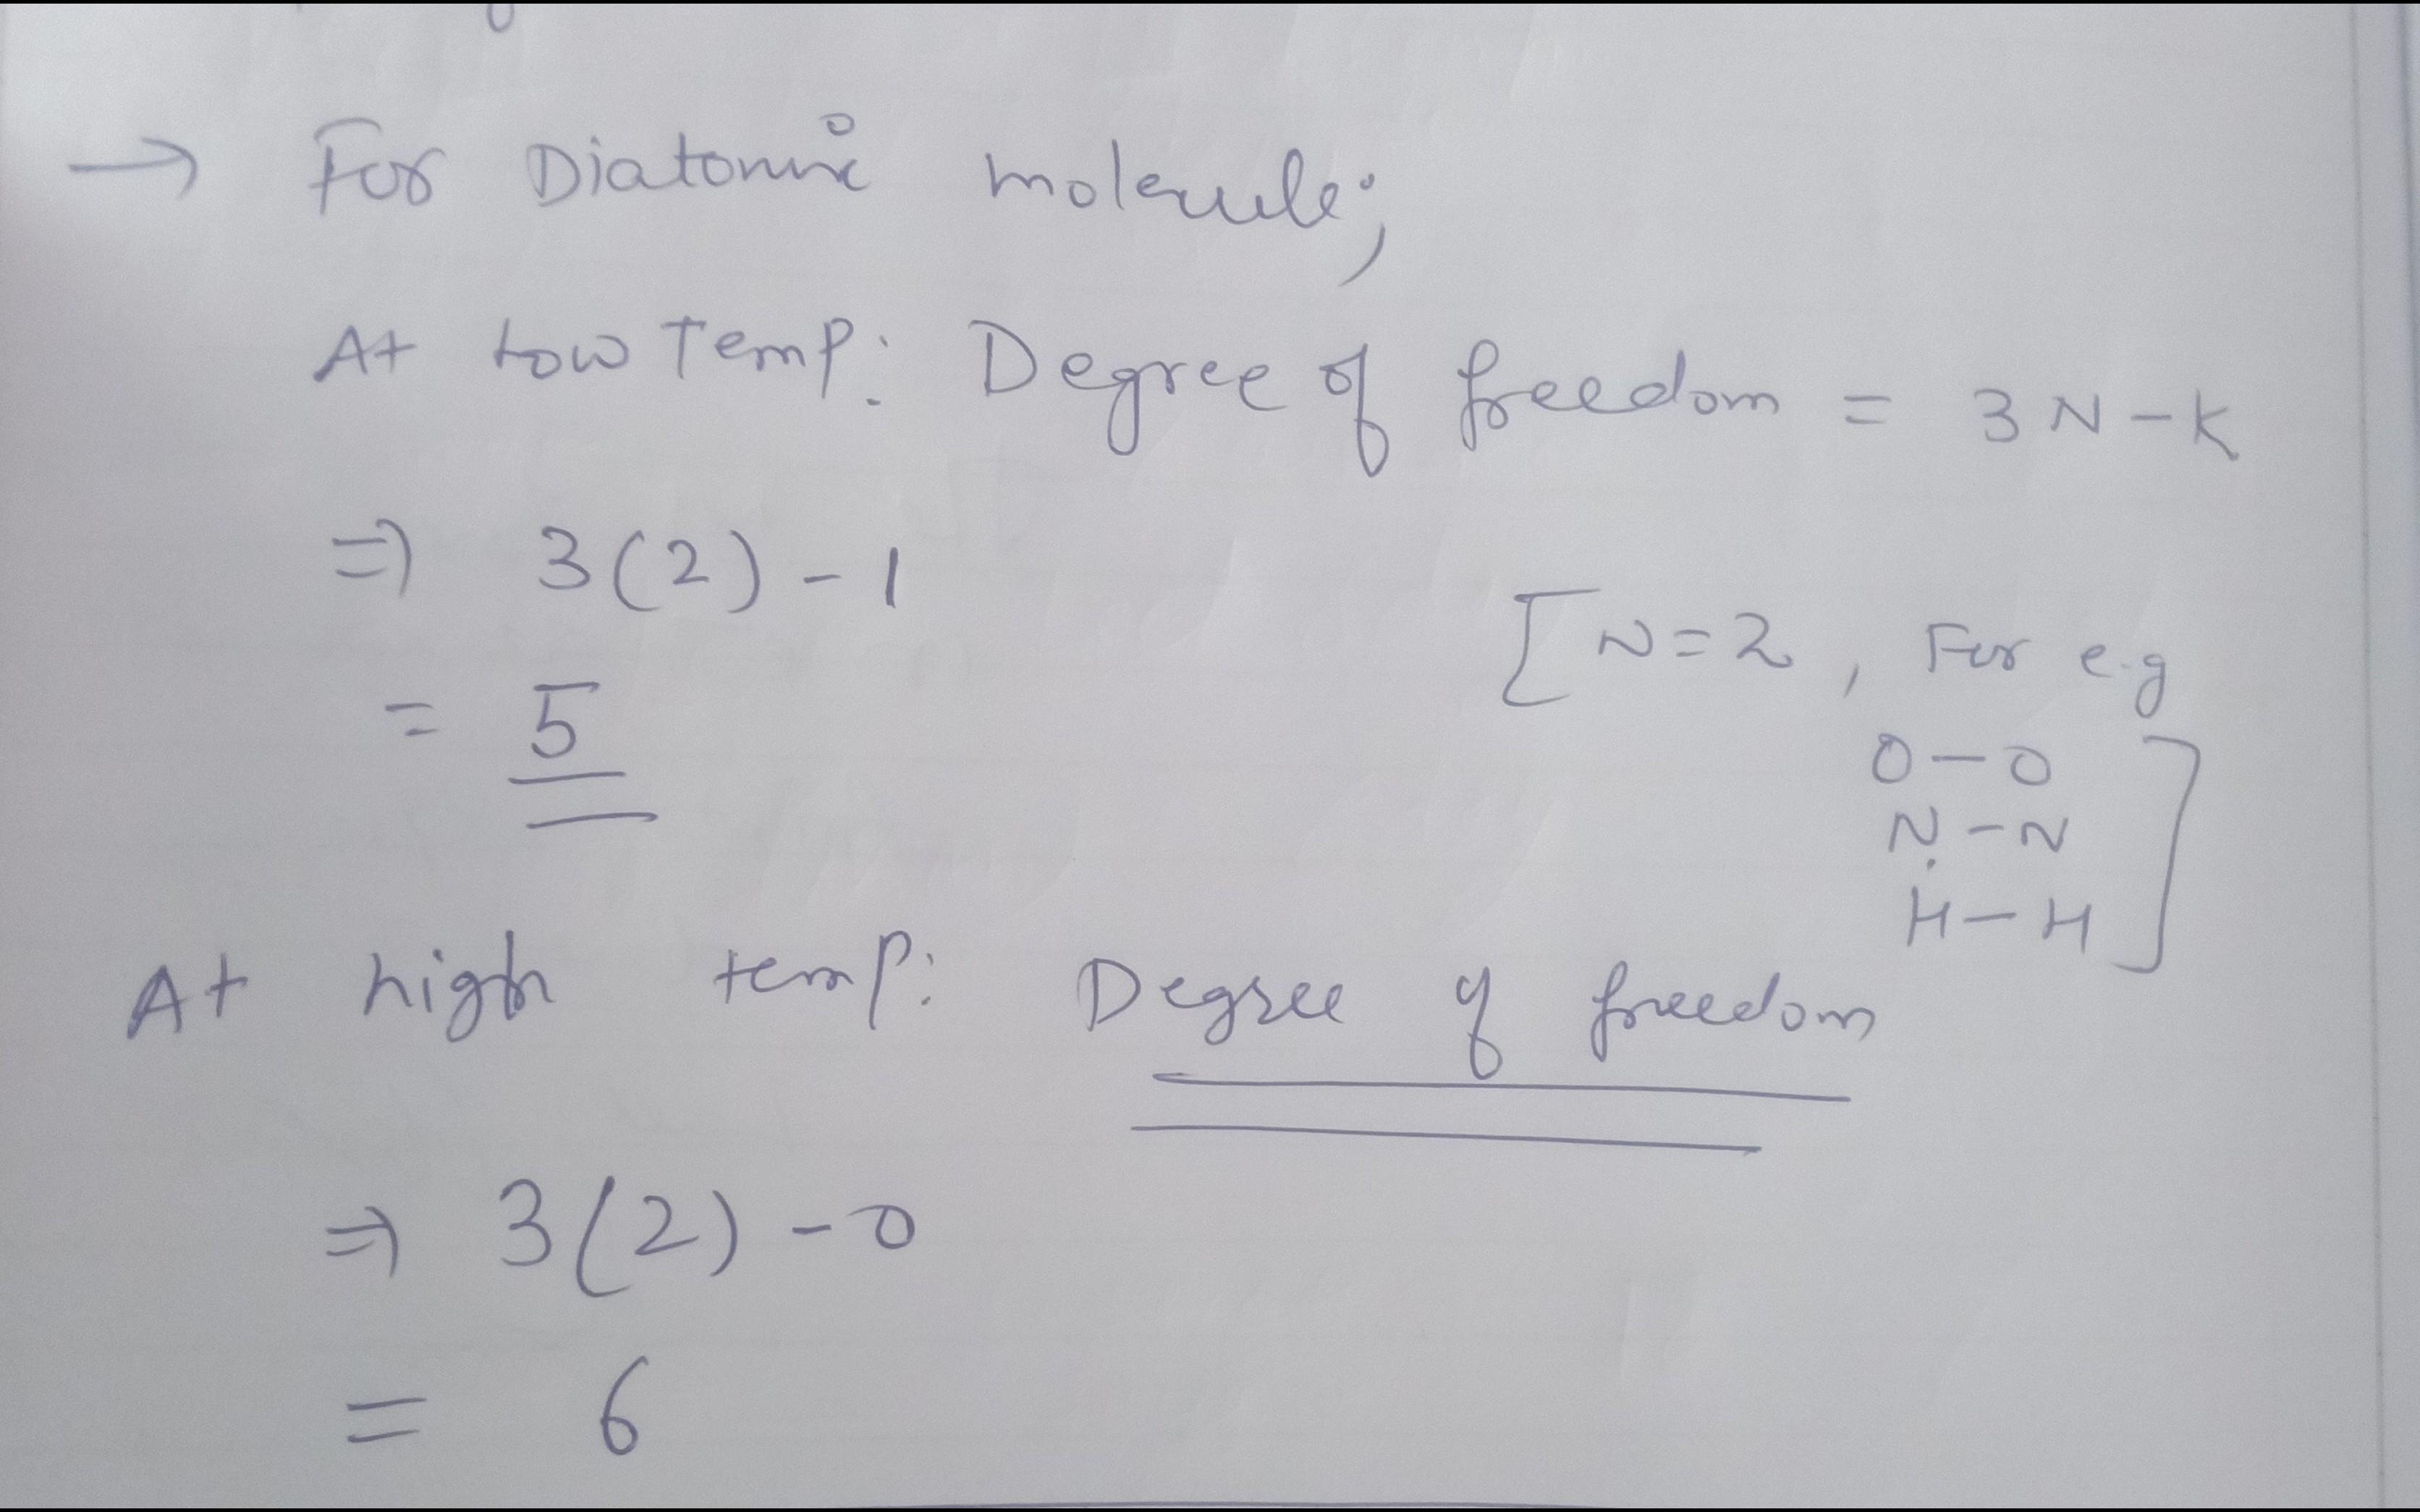 → For Diatomic molecule;
At low Temp: Degree of freedom = 3N-K
⇒ 3(2)-1
= 5
[N=2, For e.g
O-O
N-N
H-H]
At high temp: Degree of freedom
⇒ 3(2)-0
= 6